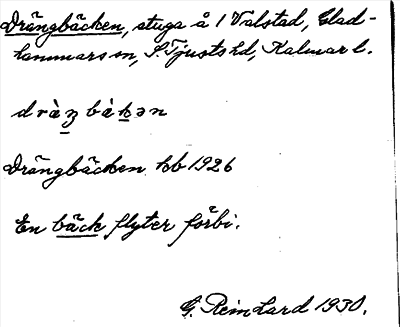 Drängbäcken, stuga å 1 Valstad, Glad-
hammars sn, S. Tjusts hd, Kalmar l.
drȁŋbȁkən
Drängbäcken kb 1926
En bäck flyter förbi.
G. Reinhard 1930.